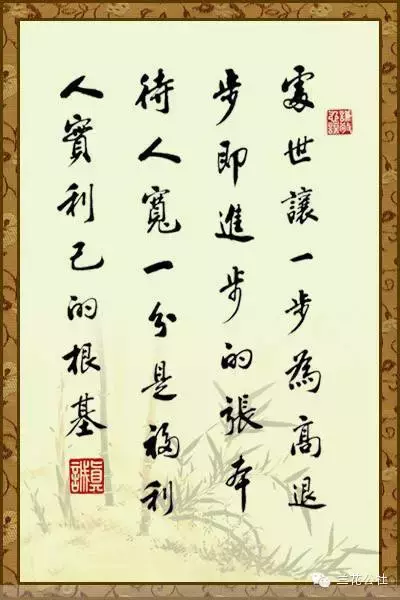 處世讓一步為高退
步即進步的張本
待人寬一分是福利
人實利己的根基
真誠
兰花公社